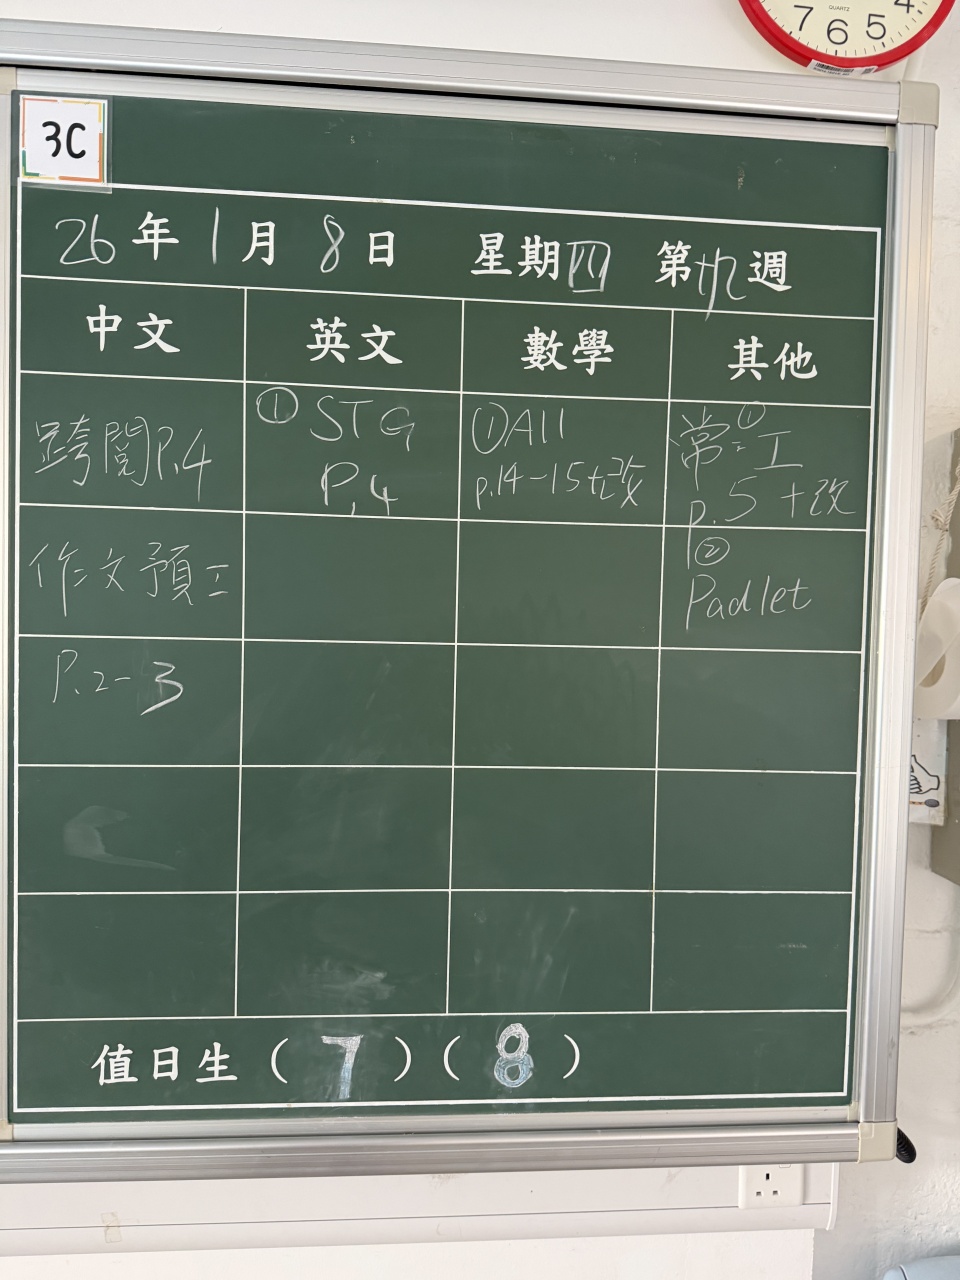 QUARTZ
7 6 5 4
3C
26年1月8日 星期四 第九週
中文 英文 數學 其他
跨閱P.4
① STG
P.4
① A11
p.14-15+改
①
常:工
p.5+改
作文預工
②
Padlet
P.2-3
值日生(7)(8)